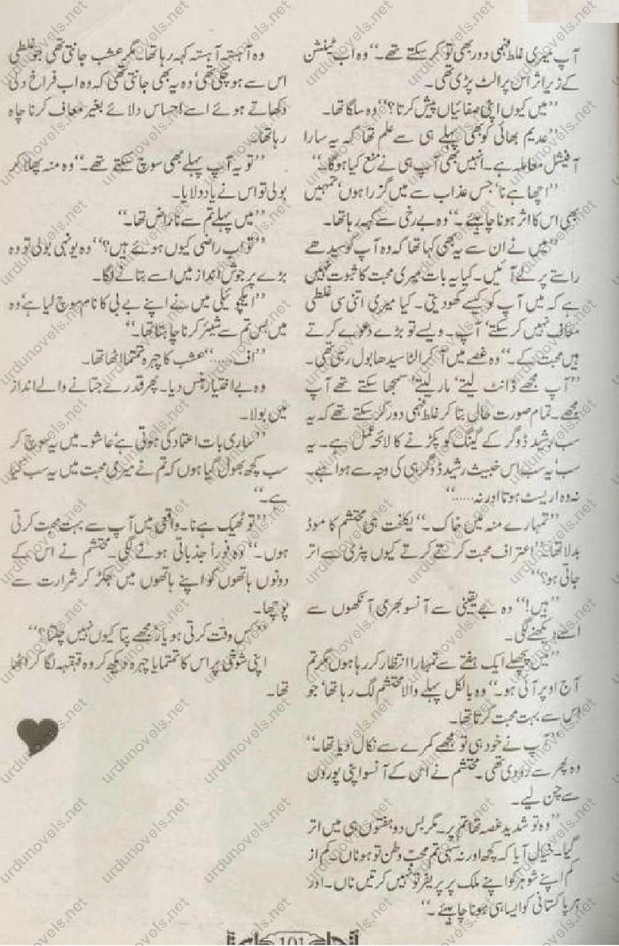 آپ میری غلط فہمی دور بھی تو کر سکتے تھے۔‘‘ وہ اب ٹینشن
کے زیر اثر اس پر الٹ پڑی تھی۔
’’میں کیوں اپنی صفائیاں پیش کرتا؟‘‘ وہ سلگا تھا۔
’’عدیم بھائی کو بھی پہلے ہی سے علم تھا کہ یہ سارا
آفیشل معاملہ ہے۔ انہیں بھی آپ ہی نے منع کیا ہوگا۔‘‘
’’اچھا ہے نا‘ جس عذاب سے میں گزرا ہوں‘ تمہیں
بھی اس کا اثر ہونا چاہیئے۔‘‘ وہ بے رخی سے کہہ رہا تھا۔
’’میں نے ان سے یہ بھی کہا تھا کہ وہ آپ کو سیدھے
راستے پر لے آئیں۔ کیا یہ بات میری محبت کا ثبوت نہیں
ہے کہ میں آپ کو کیسے کھو دیتی۔ کیا میری اتنی سی غلطی
معاف نہیں کر سکتے‘ آپ۔ ویسے تو بڑے دعوے کرتے
ہیں محبت کے۔‘‘ وہ غصے میں آ کر الٹا سیدھا بول رہی تھی۔
’’آپ مجھے ڈانٹ لیتے‘ مار لیتے‘ سمجھا سکتے تھے آپ
مجھے۔ تمام صورت حال بتا کر غلط فہمی دور کر سکتے تھے کہ یہ
سب رشید ڈوگر کے گینگ کو پکڑنے کا لائحہ عمل ہے۔ یہ
سب یہ سب اس خبیث رشید ڈوگر ہی کی وجہ سے ہوا ہے۔
نہ وہ اریسٹ ہوتا اور نہ.....‘‘
’’تمہارے منہ میں خاک۔‘‘ یکلخت ہی محتشم کا موڈ
بدلا تھا۔ ’’اعتراف محبت کرتے کرتے کیوں پٹری سے اتر
جاتی ہو؟‘‘
’’ہیں!‘‘ وہ بے یقینی سے آنسو بھری آنکھوں سے
اسے دیکھنے لگی۔
’’میں پچھلے ایک ہفتے سے تمہارا انتظار کر رہا ہوں مگر تم
آج اوپر آئی ہو۔‘‘ وہ بالکل پہلے والا محتشم لگ رہا تھا‘ جو
اس سے بہت محبت کرتا تھا۔
’’آپ نے خود ہی تو مجھے کمرے سے نکال دیا تھا۔‘‘
وہ پھر سے رو دی تھی۔ محتشم نے اس کے آنسو اپنی پوروں
سے چن لیے۔
’’وہ تو شدید غصہ تھا تم پر۔ مگر بس دو ہفتوں ہی میں اتر
گیا۔ خیال آیا کہ کچھ اور نہ سہی تم محب وطن تو ہو ناں۔ کم از
کم اپنے شوہر کو اپنے ملک پر پریفر تو نہیں کرتیں ناں۔ اور
ہر پاکستانی کو ایسا ہی ہونا چاہیئے۔‘‘
وہ آہستہ آہستہ کہہ رہا تھا۔ مگر عشب جانتی تھی جو غلطی
اس سے ہو چکی تھی‘ وہ یہ بھی جانتی تھی کہ وہ اب فراخ دلی
دکھاتے ہوئے اسے احساس دلائے بغیر معاف کرنا چاہ
رہا تھا۔
’’تو یہ آپ پہلے بھی سوچ سکتے تھے۔‘‘ وہ منہ پھلا کر
بولی تو اس نے یاد دلایا۔
’’میں پہلے تم سے ناراض تھا۔‘‘
’’تو اب راضی کیوں ہوئے ہیں؟‘‘ وہ یونہی بولی تو وہ
بڑے پرجوش انداز میں اسے بتانے لگا۔
’’ایکچوئیلی میں نے اپنے بے بی کا نام سوچ لیا ہے‘ وہ
میں بس تم سے شیئر کرنا چاہتا تھا۔‘‘
’’اف.....‘‘ عشب کا چہرہ تمتما اٹھا تھا۔
وہ بے اختیار ہنس دیا۔ پھر قدرے جتانے والے انداز
میں بولا۔
’’ساری بات اعتماد کی ہوتی ہے عاشو۔ میں یہ سوچ کر
سب کچھ بھول گیا ہوں کہ تم نے میری محبت میں یہ سب کیا
ہے۔‘‘
’’تو ٹھیک ہے نا۔ واقعی میں آپ سے بہت محبت کرتی
ہوں۔‘‘ وہ فوراً جذباتی ہونے لگی۔ محتشم نے اس کے
دونوں ہاتھوں کو اپنے ہاتھوں میں جکڑ کر شرارت سے
پوچھا۔
’’کس وقت کرتی ہو یار مجھے پتا کیوں نہیں چلتا؟‘‘
اپنی شوخی پر اس کا تمتمایا چہرہ دیکھ کر وہ قہقہہ لگا کر اٹھا
تھا۔
101
urdunovels.net